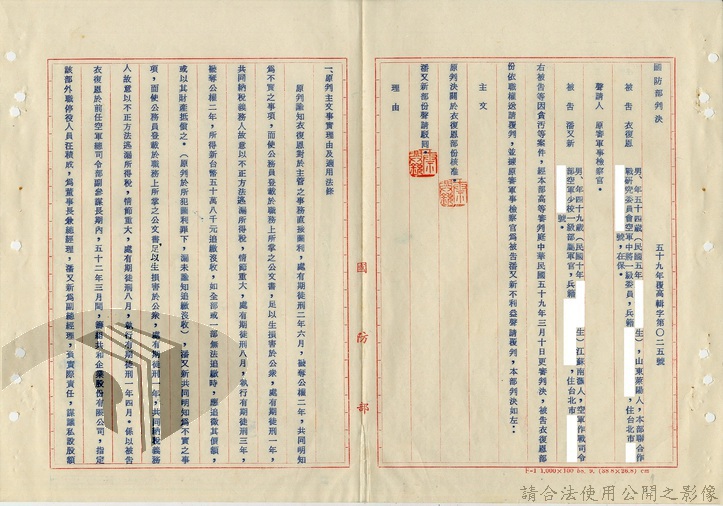 國防部判決
五十九年覆高輯字第〇二五號
被告 衣復恩 男、年五十四歲(民國五年 生),山東萊陽人,本部聯合作
戰研究委員會空軍中將一級委員,兵籍 號,在保。 住台北市
聲請人 原審軍事檢察官。
被告 潘又新 男、年四十九歲(民國十年 生)江蘇南匯人,空軍作戰司令
部空軍少校一級部屬軍官,兵籍 號。 住台北市
右被告等因貪污等案件,經本部高等審判庭中華民國五十九年三月十日更審判決,被告衣復恩部
份依職權送請覆判,並據原審軍事檢察官為被告潘又新不利益聲請覆判,本部判決如左:
主文
原判決關於衣復恩部份核准。
潘又新部份聲請駁回。
理由
一、原判主文事實理由及適用法條
原判諭知衣復恩對於主管之事務直接圖利,處有期徒刑二年六月,褫奪公權二年,共同明知
為不實之事項,而使公務員登載於職務上所掌之公文書,足以生損害於公眾,處有期徒刑一年,
共同納稅義務人故意以不正方法逃漏所得稅,情節重大,處有期徒刑八月,執行有期徒刑三年,
褫奪公權二年,所得新台幣五十萬八千元追繳沒收,如全部或一部無法追繳時,應追徵其價額,
或以其財產抵償之。(原判於所犯圖利罪下,漏未諭知追繳沒收),潘又新共同明知為不實之事
項,而使公務員登載於職務上所掌之公文書足以生損害於公眾,處有期徒刑一年,共同納稅義務
人故意以不正方法逃漏所得稅,情節重大,處有期徒刑八月,執行有期徒刑一年四月。係以被告
衣復恩於前任空軍總司令部副參謀長期內,五十二年三月間,籌組共和企業股份有限公司,指定
該部外職停役人員汪積成,為董事長兼總經理,潘又新為副總經理,負實際責任,謀議私設股額
國防部
F-1 1,000×100 59. 9. (38.8×26.8) cm
請合法使用公開之影像